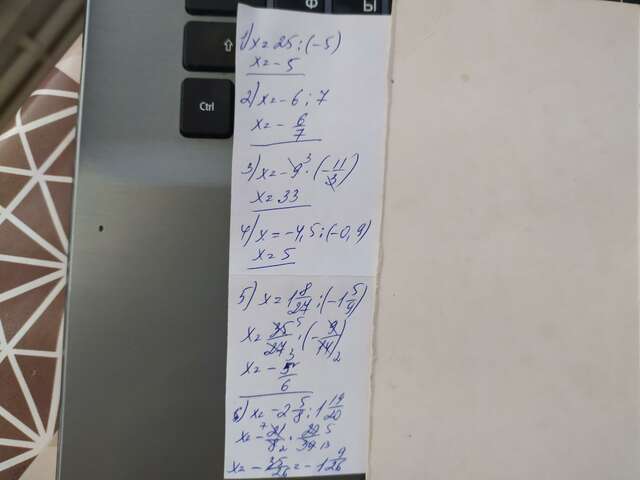 Ctrl
⇧
Ф
Ы
1) x = 25 : (-5)
x = - 5
2) x = - 6 : 7
x = - 6/7
3) x = - 9³ · (- 11/3)
x = 33
4) x = - 4,5 : (-0,9)
x = 5
5) x = 1 8/27 : (-1 5/9)
x = 35⁵/27₃ · (- 9/14₂)
x = - 5/6
6) x = -2 5/8 : 1 19/20
x = - ⁷21/8₂ · 20⁵/39₁₃
x = - 35/26 = - 1 9/26